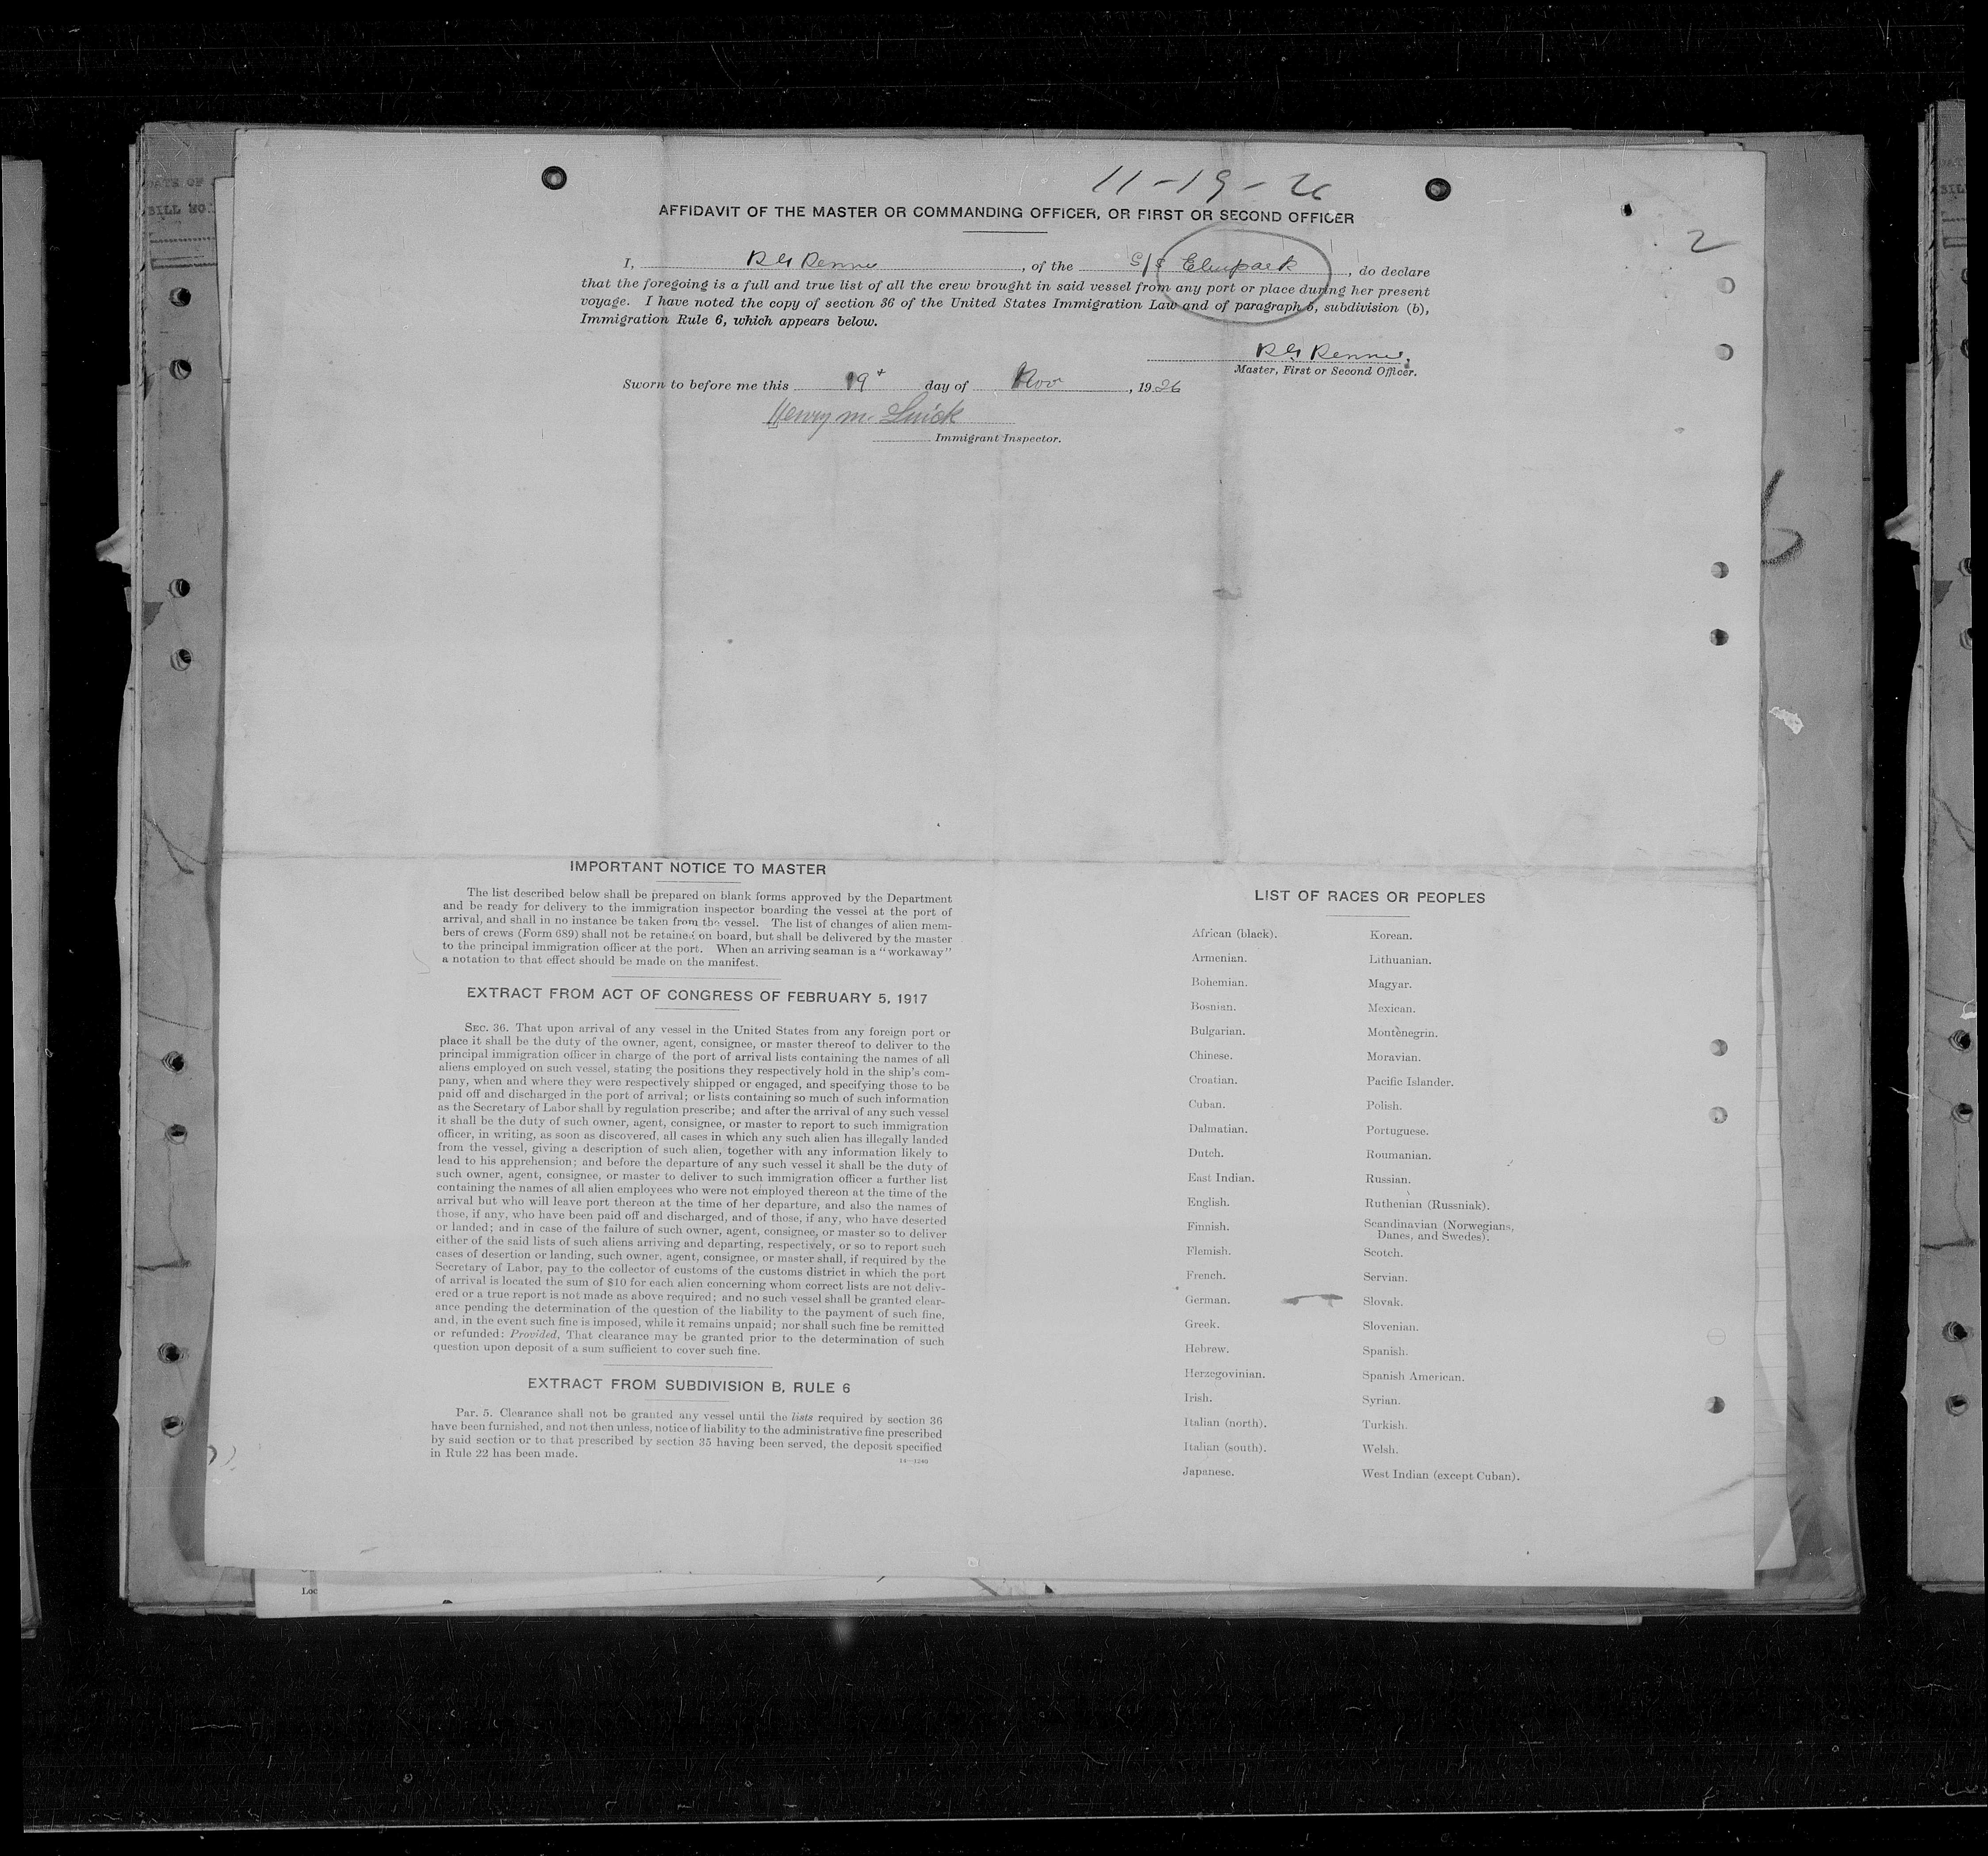 11-19-26
AFFIDAVIT OF THE MASTER OR COMMANDING OFFICER, OR FIRST OR SECOND OFFICER
2
I, , of the S/S Elmpark, do declare
that the foregoing is a full and true list of all the crew brought in said vessel from any port or place during her present
voyage. I have noted the copy of section 36 of the United States Immigration Law and of paragraph 5, subdivision (b),
Immigration Rule 6, which appears below.
Master, First or Second Officer.
Sworn to before me this 19 day of Nov, 1926
Henry M.
Immigrant Inspector.
IMPORTANT NOTICE TO MASTER
The list described below shall be prepared on blank forms approved by the Department
and be ready for delivery to the immigration inspector boarding the vessel at the port of
arrival, and shall in no instance be taken from the vessel. The list of changes of alien mem-
bers of crews (Form 689) shall not be retained on board, but shall be delivered by the master
to the principal immigration officer at the port. When an arriving seaman is a "workaway"
a notation to that effect should be made on the manifest.
EXTRACT FROM ACT OF CONGRESS OF FEBRUARY 5, 1917
SEC. 36. That upon arrival of any vessel in the United States from any foreign port or
place it shall be the duty of the owner, agent, consignee, or master thereof to deliver to the
principal immigration officer in charge of the port of arrival lists containing the names of all
aliens employed on such vessel, stating the positions they respectively hold in the ship's com-
pany, when and where they were respectively shipped or engaged, and specifying those to be
paid off and discharged in the port of arrival; or lists containing so much of such information
as the Secretary of Labor shall by regulation prescribe; and after the arrival of any such vessel
it shall be the duty of such owner, agent, consignee, or master to report to such immigration
officer, in writing, as soon as discovered, all cases in which any such alien has illegally landed
from the vessel, giving a description of such alien, together with any information likely to
lead to his apprehension; and before the departure of any such vessel it shall be the duty of
such owner, agent, consignee, or master to deliver to such immigration officer a further list
containing the names of all alien employees who were not employed thereon at the time of the
arrival but who will leave port thereon at the time of her departure, and also the names of
those, if any, who have been paid off and discharged, and of those, if any, who have deserted
or landed; and in case of the failure of such owner, agent, consignee, or master so to deliver
either of the said lists of such aliens arriving and departing, respectively, or so to report such
cases of desertion or landing, such owner, agent, consignee, or master shall, if required by the
Secretary of Labor, pay to the collector of customs of the customs district in which the port
of arrival is located the sum of $10 for each alien concerning whom correct lists are not deliv-
ered or a true report is not made as above required; and no such vessel shall be granted clear-
ance pending the determination of the question of the liability to the payment of such fine,
and, in the event such fine is imposed, while it remains unpaid; nor shall such fine be remitted
or refunded: Provided, That clearance may be granted prior to the determination of such
question upon deposit of a sum sufficient to cover such fine.
EXTRACT FROM SUBDIVISION B, RULE 6
Par. 5. Clearance shall not be granted any vessel until the lists required by section 36
have been furnished, and not then unless, notice of liability to the administrative fine prescribed
by said section or to that prescribed by section 35 having been served, the deposit specified
in Rule 22 has been made.
LIST OF RACES OR PEOPLES
African (black).
Armenian.
Bohemian.
Bosnian.
Bulgarian.
Chinese.
Croatian.
Cuban.
Dalmatian.
Dutch.
East Indian.
English.
Finnish.
Flemish.
French.
German.
Greek.
Hebrew.
Herzegovinian.
Irish.
Italian (north).
Italian (south).
Japanese.
Korean.
Lithuanian.
Magyar.
Mexican.
Montenegrin.
Moravian.
Pacific Islander.
Polish.
Portuguese.
Roumanian.
Russian.
Ruthenian (Russniak).
Scandinavian (Norwegians,
Danes, and Swedes).
Scotch.
Servian.
Slovak.
Slovenian.
Spanish.
Spanish American.
Syrian.
Turkish.
Welsh.
West Indian (except Cuban).
Loc